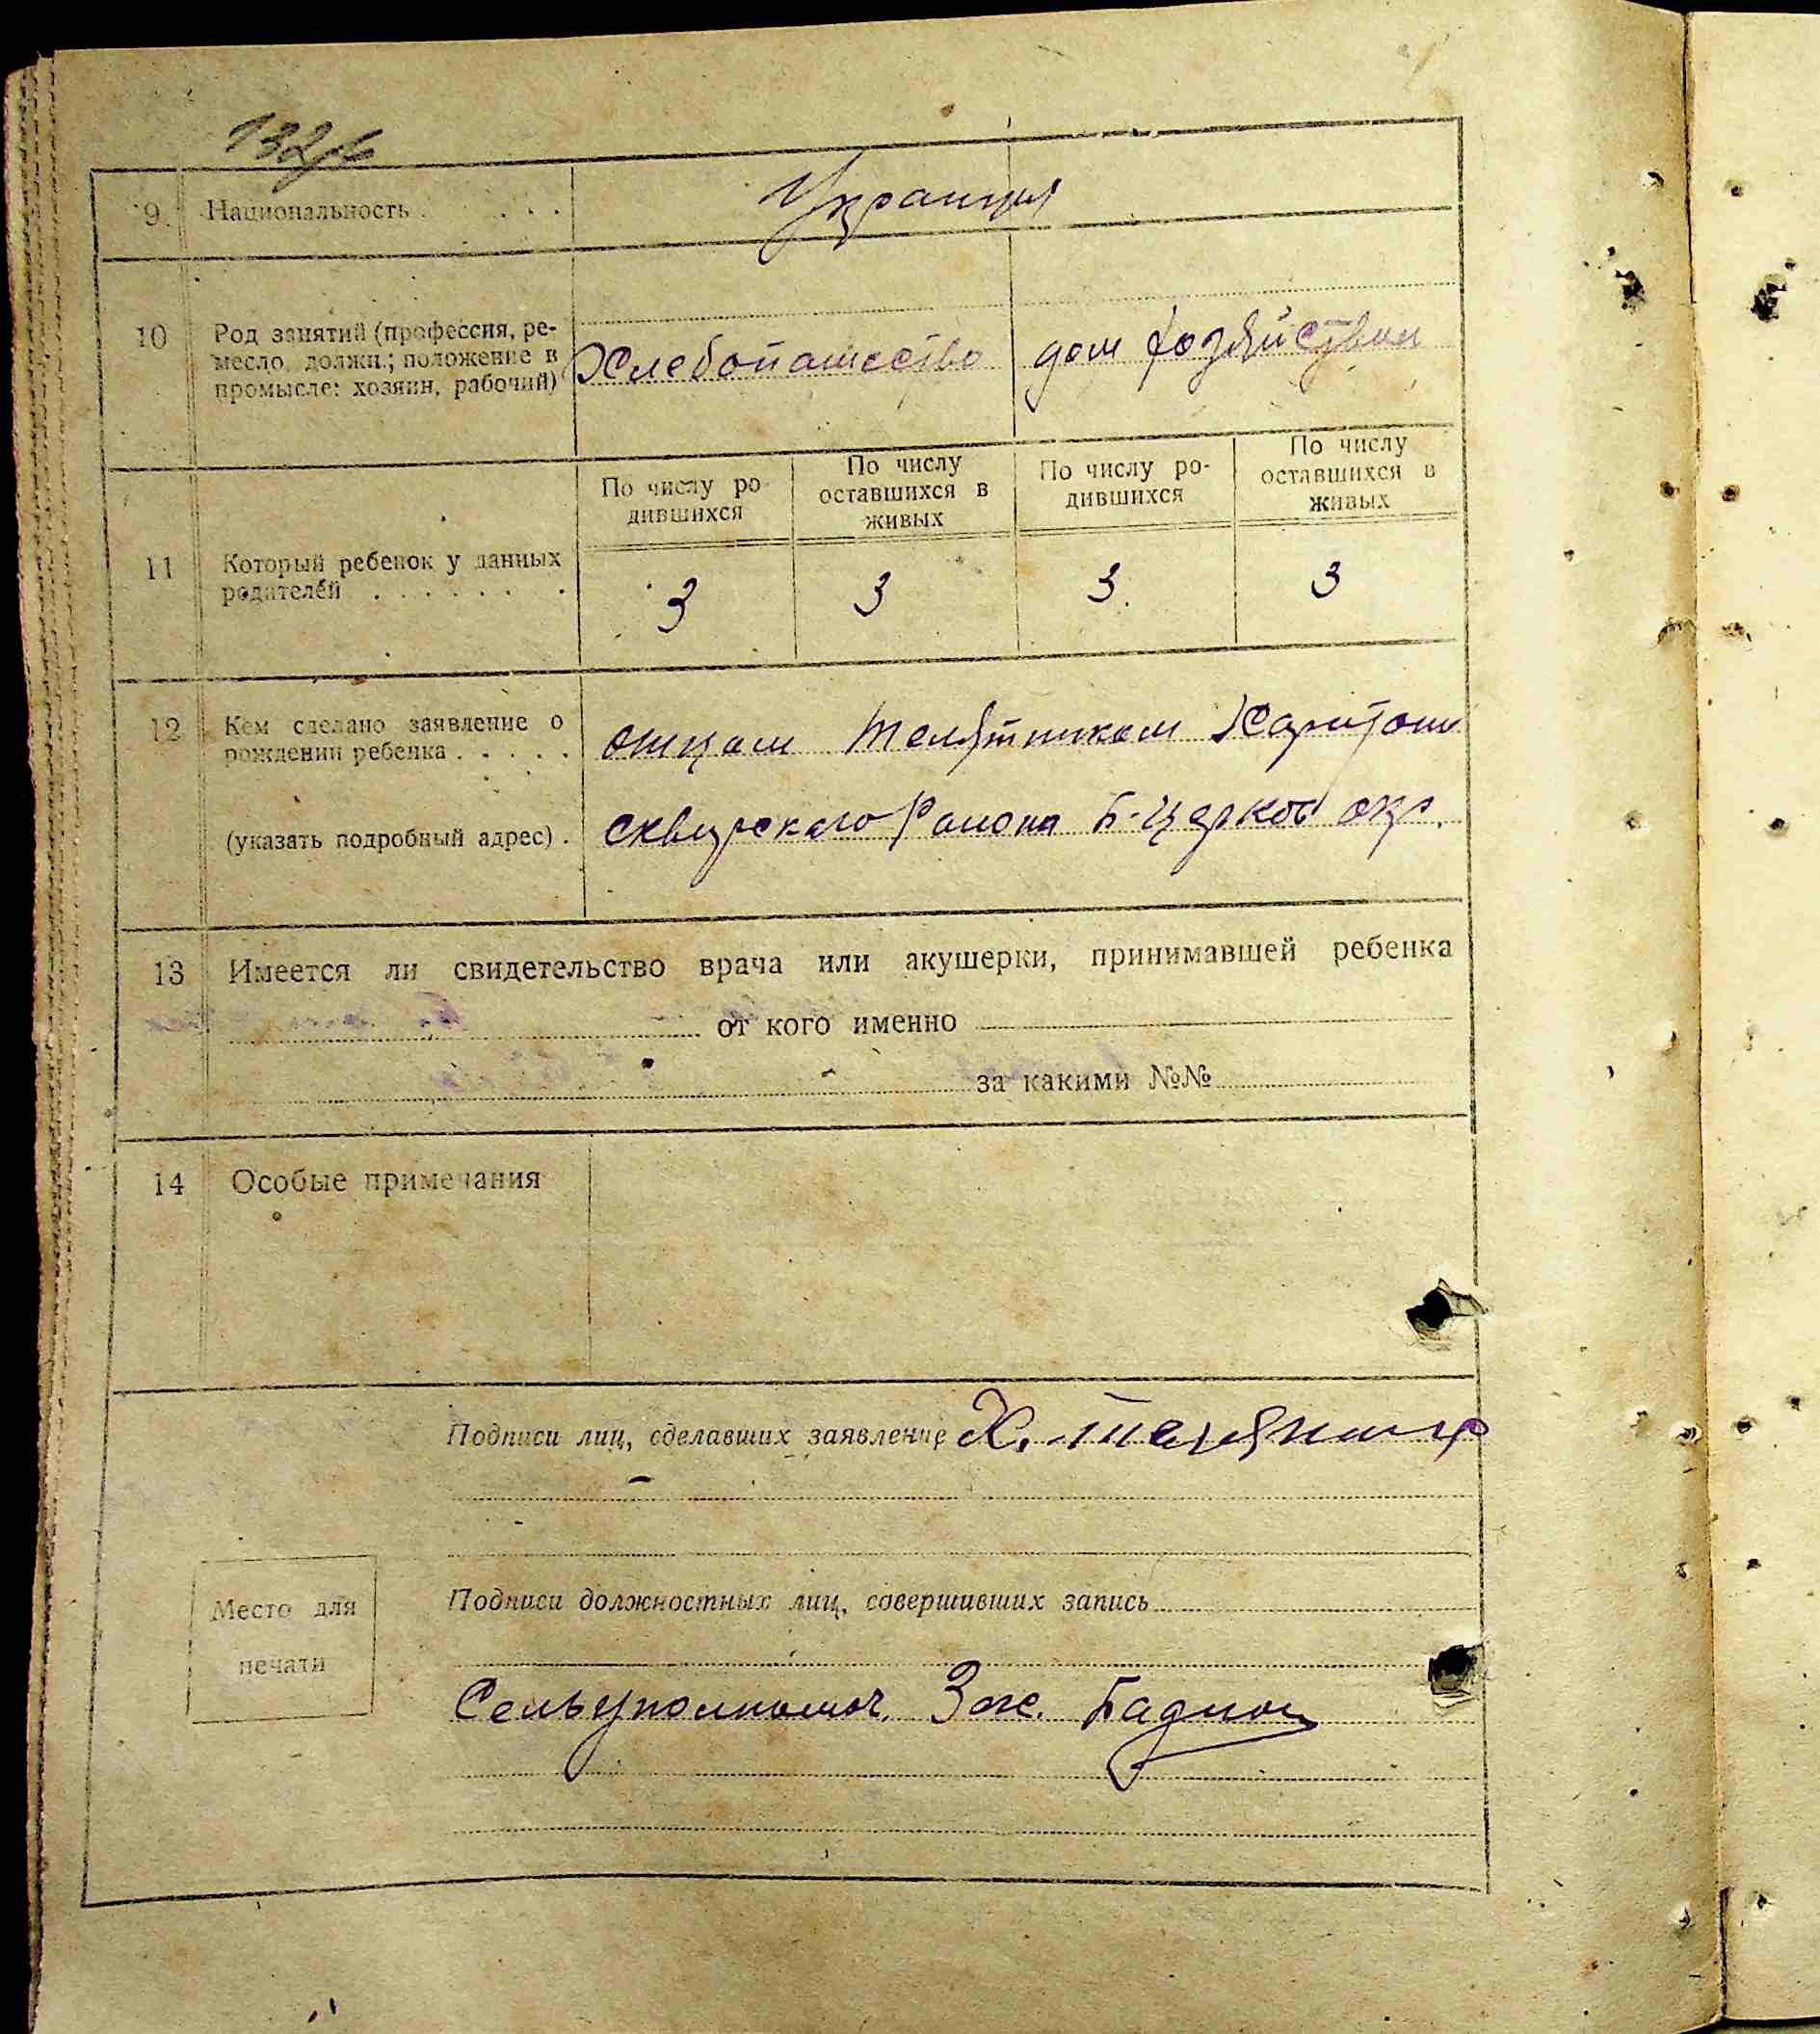 9. Национальность . . . .
Украинця
10 Род занятий (профессия, ре-
месло, должн.; положение в
промысле: хозяин, рабочий)
Хлебопашество
дом хозяйство
По числу ро-
дившихся
По числу
оставшихся в
живых
По числу ро-
дившихся
По числу
оставшихся в
живых
11 Который ребенок у данных
родителей . . . . . . .
3 3 3 3
12 Кем сделано заявление о
рождении ребенка . . . . .
отцом Телятником Харитоном
(указать подробный адрес) .
сквирского Района Б-Церков окр.
13 Имеется ли свидетельство врача или акушерки, принимавшей ребенка
от кого именно
за какими №№
14 Особые примечания
Подписи лиц, сделавших заявление Х.
Место для
печати
Подписи должностных лиц, совершивших запись
Сельуполномоч.